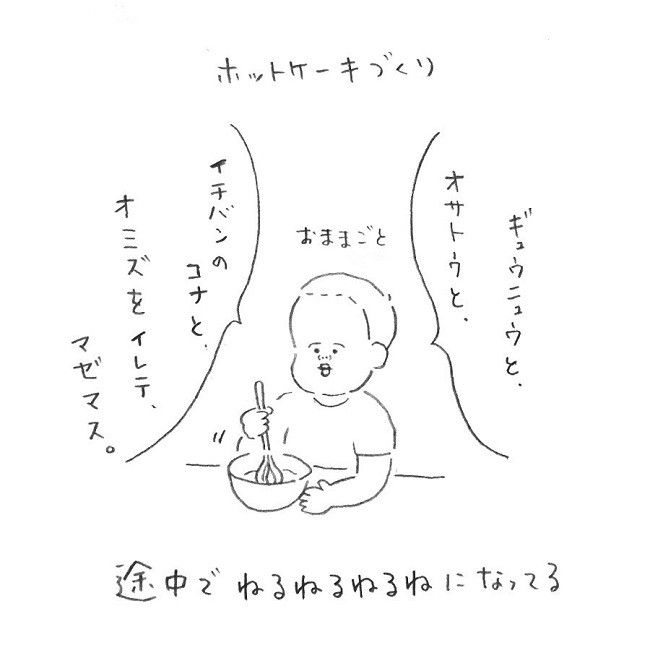 ホットケーキづくり
おままごと
ギュウニュウと、
オサトウと、
イチバンの
コナと、
オミズをイレテ、
マゼマス。
途中でねるねるねるねになってる